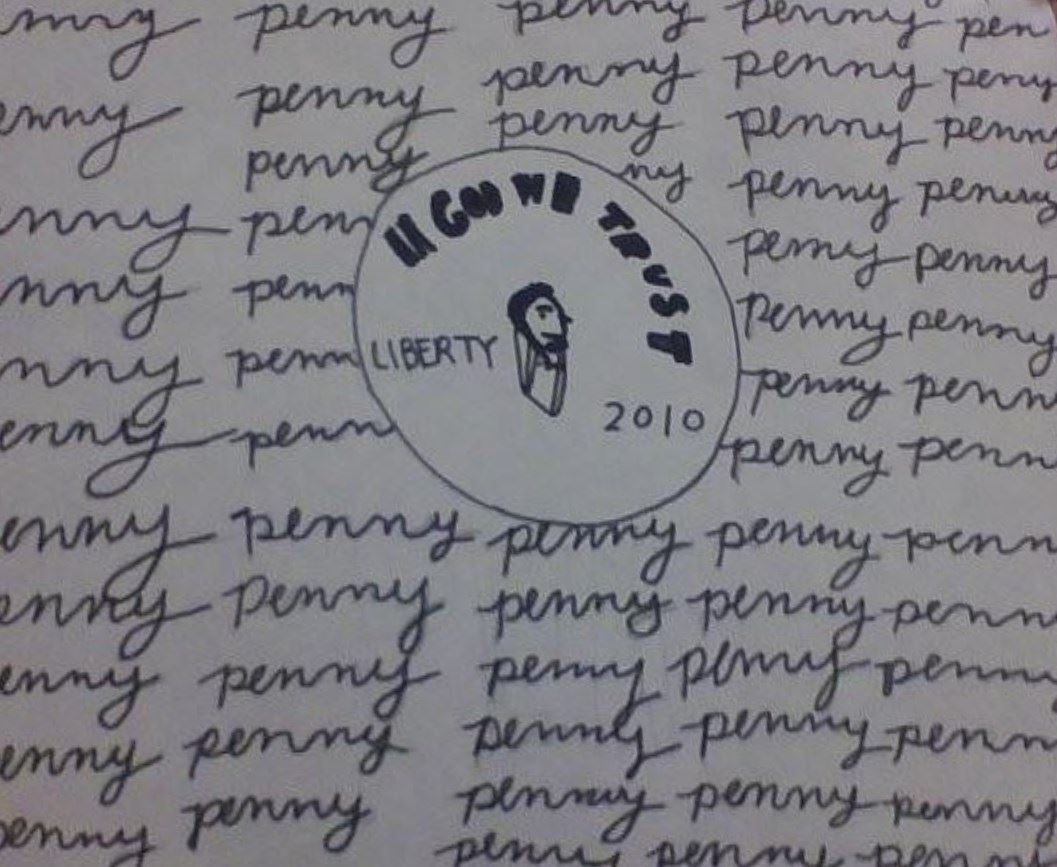 nny penny penny penny pen
penny penny peny
enny penny penny penny penny
penny ny penny penny
nny pen penny penny
IN GOD WE TRUST
nny penn penny penny
nny penn LIBERTY penny penn
2010
enny penn penny penn
enny penny penny penny penn
enny penny penny penny penn
enny penny penny penny penny
enny penny penny penny penn
enny penny penny penny penny
penny penny penn